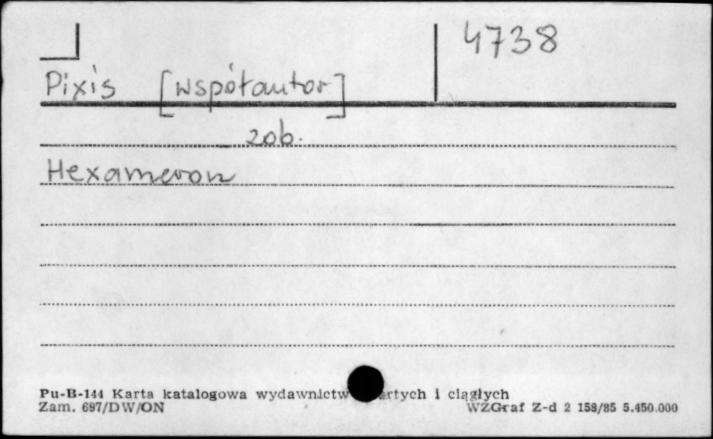 4738
Pixis [współautor]
zob.
Hexameron
Pu-B-144 Karta katalogowa wydawnictw zwartych i ciągłych
Zam. 697/DW/ON WZGraf Z-d 2 158/85 5.450.000